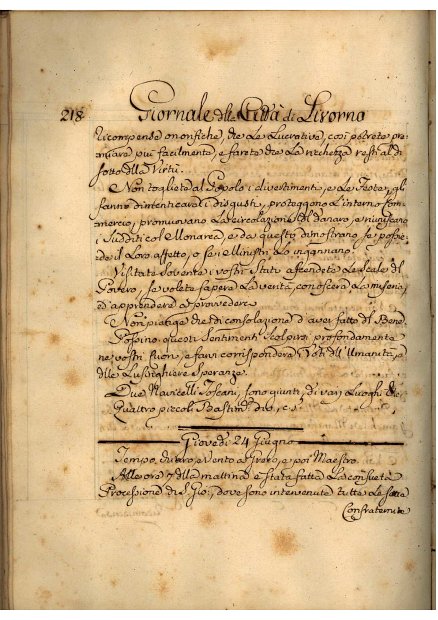 218
Giornale della Città di Livorno
ricompense onorifiche, che le lucrative, così potrete pre=
miare più facilmente, e farete che la richezza resti al di
sotto della Virtù.
Non togliete al Popolo i divertimenti, e le Feste, gli
fanno dimenticare i disgusti, proteggono l'interno Com
mercio, promuovano la circolazione del danaro, e riuniscano
i Sudditi col Monarca, e da questo dimostrano se possie
de il loro affetto, o se i Ministri lo ingannano.
Visitate sovente i vostri Stati ascendete le scale del
Povero, se volete sapere la verità, conoscere la miseria,
ed apprendere a provedere.
Non piange che di consolazione d'aver fatto del Bene
Possino questi Sentimenti scolpirsi profondamente
ne vostri Cuori, e farvi corrispondere Voti dell'Umanità, e
delle Lusinghiere Speranze.
Due Navicelli Toscani, sono giunti, di varj Luoghi che,
Quattro piccoli Bastim.ti
Giovedì 24 Giugno
Tempo, chiaro, e Vento a Greco, e poi Maestro.
Alle ore 7 della mattina è stata fatta la consueta
Processione di S. Gio: dove sono intervenute tutte le
Confraternite